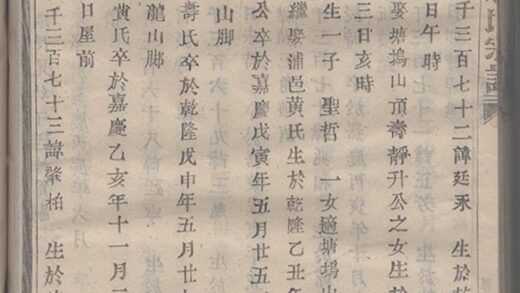 氏宗譜
千三百七十二諱廷永 生於
日午時
娶塘塢山頂壽靜升公之女生於
三日亥時
生一子 聖哲 一女適塘塢山
繼娶浦邑黃氏生於乾隆乙丑年
公卒於嘉慶戊寅年五月廿五
山脚
壽氏卒於乾隆戊申年五月廿
龍山脚
黃氏卒於嘉慶乙亥年十一月
口屋前
千三百七十三諱肇柏 生於